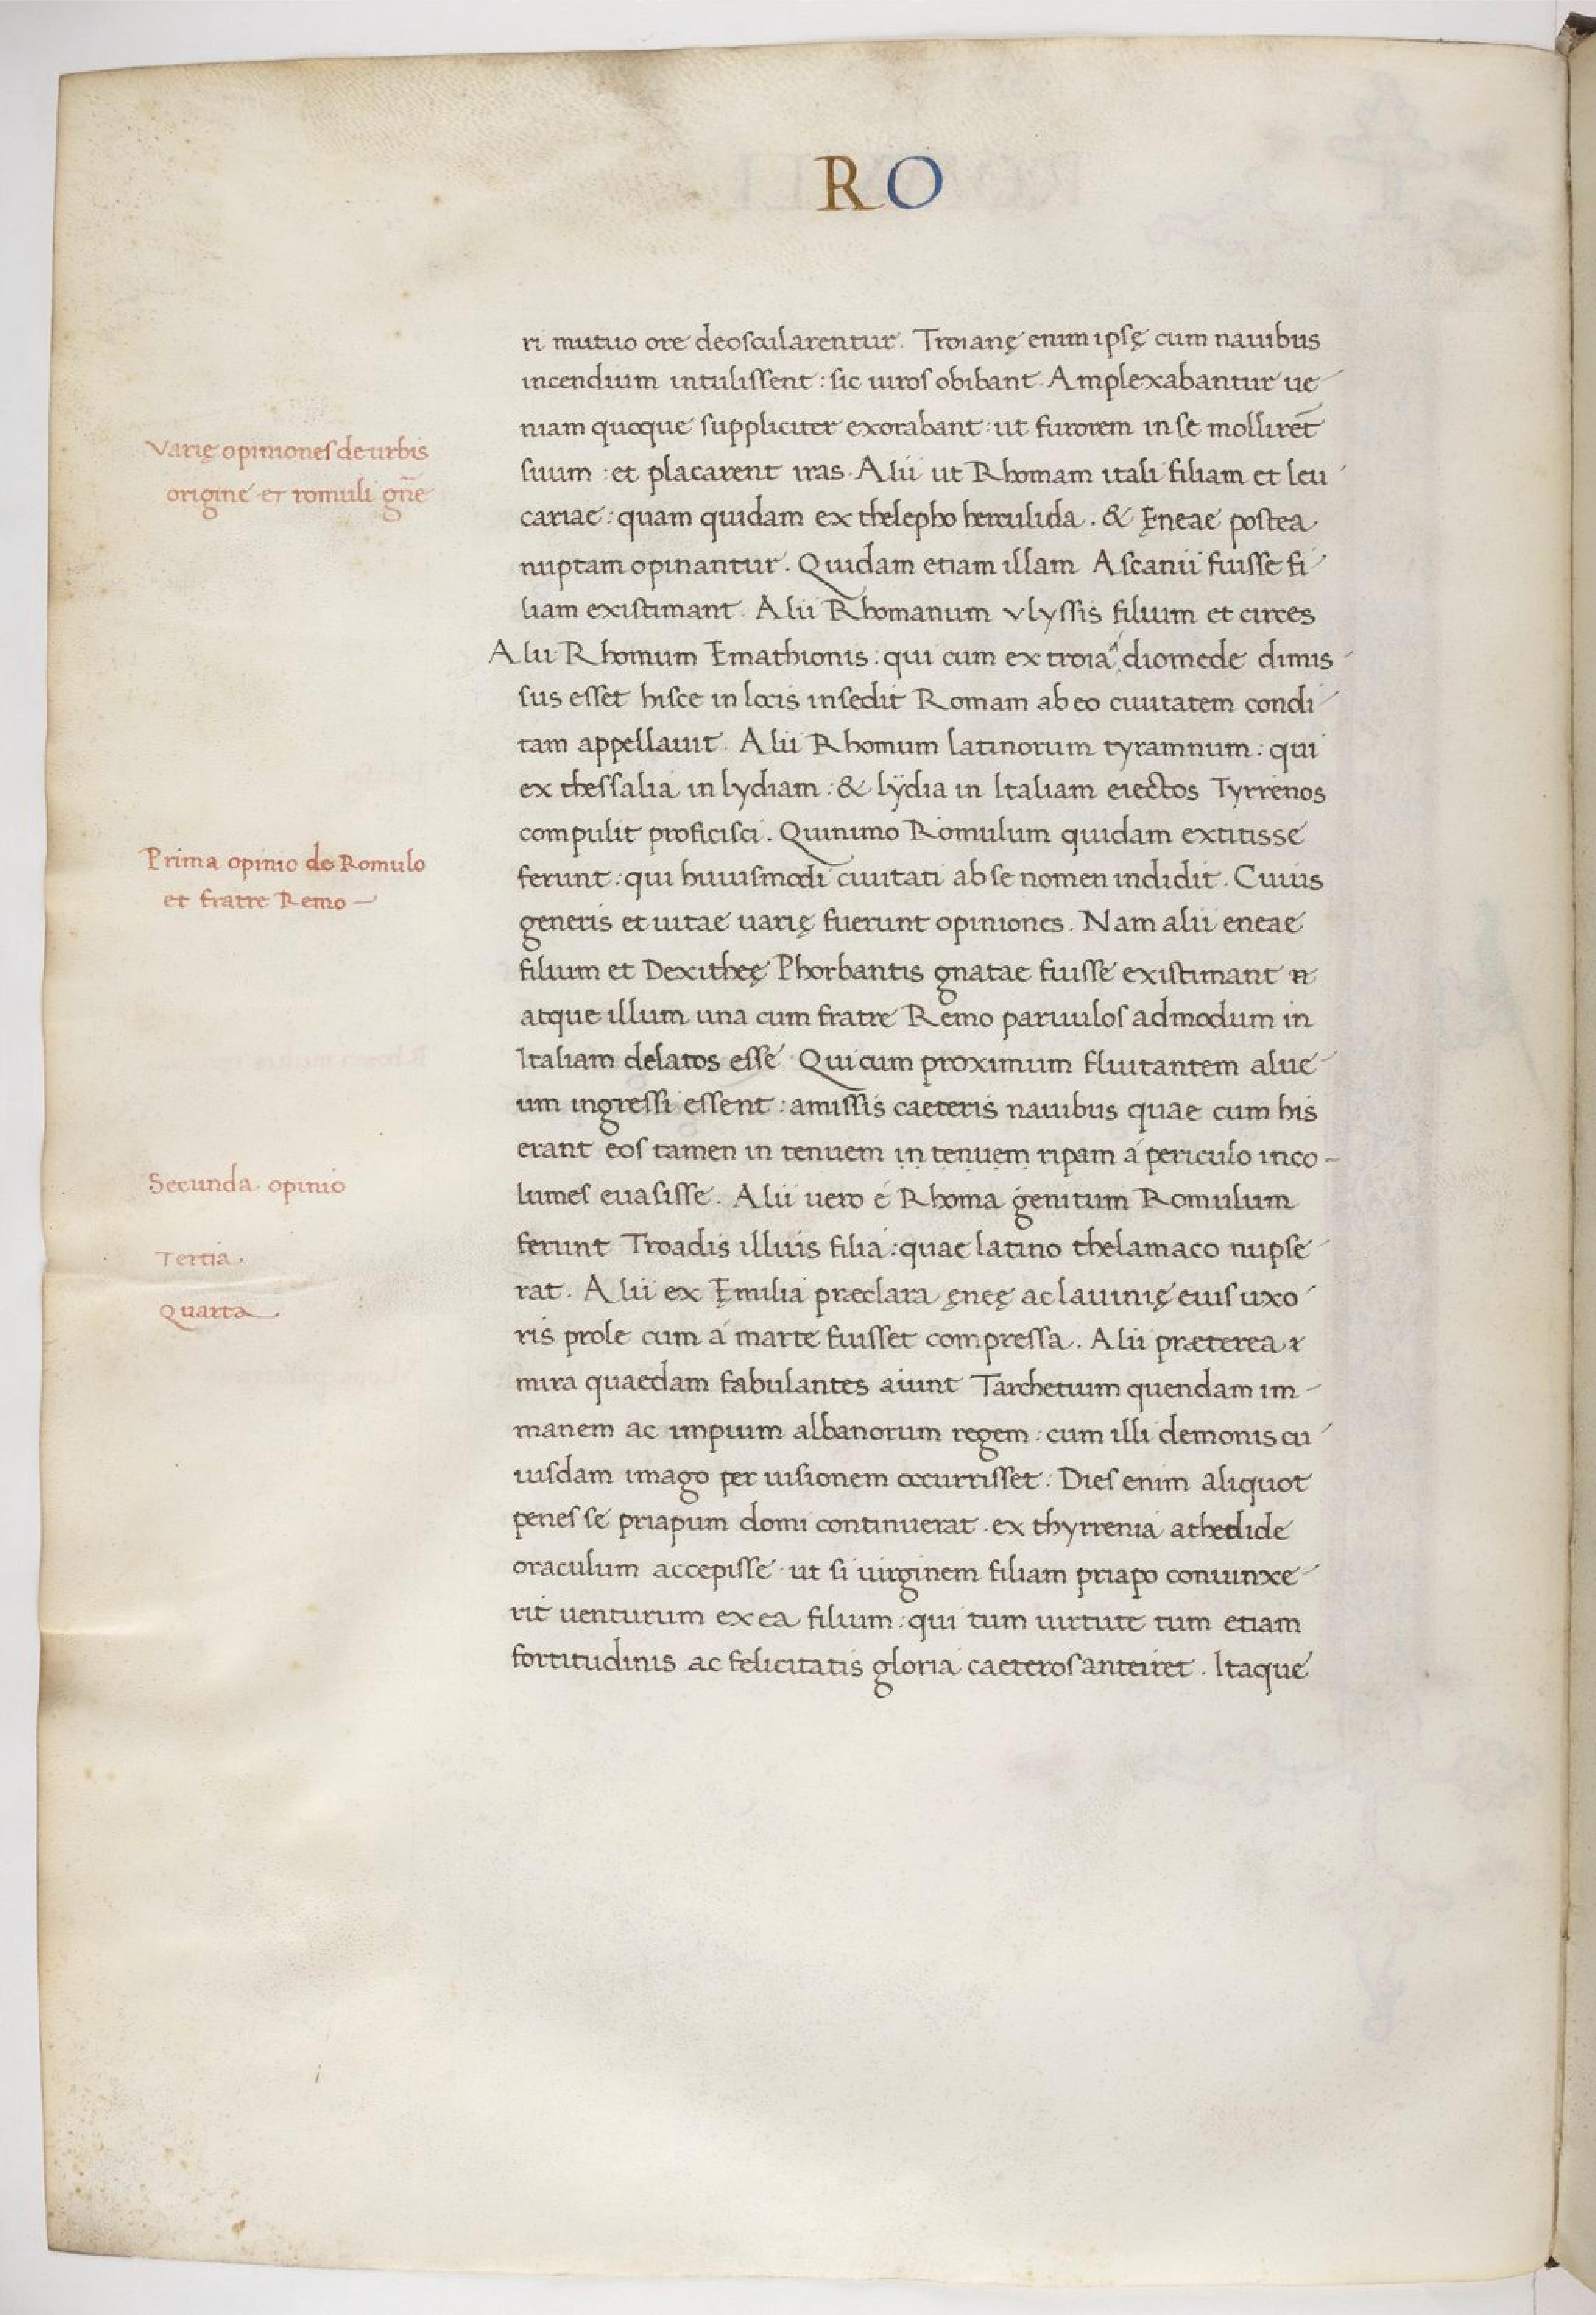 RO
ri mutuo ore deoscularentur. Troianę enim ipsę cum nauibus
incendium intulissent: sic uiros obibant. Amplexabantur ue
niam quoque suppliciter exorabant: ut furorem in se mollirēt
Varię opiniones de urbis
suum: et placarent iras. Alii ut Rhomam itali filiam et leu
origine et romuli gn̄e
cariae: quam quidam ex thelepho herculida. & Ęneae postea
nuptam opinantur. Quidam etiam illam Ascanii fuisse fi
liam existimant. Alii Rhomanum vlyssis filium et circes
Alii Rhomum Emathionis: qui cum ex troia a diomede dimis
sus esset hisce in locis insedit Romam ab eo ciuitatem condi
tam appellauit. Alii Rhomum latinorum tyramnum: qui
ex thessalia in lydiam: & lydia in Italiam eiectos Tyrrenos
compulit proficisci. Quinimo Romulum quidam extitisse
Prima opinio de Romulo
et fratre Remo
ferunt: qui huiusmodi ciuitati ab se nomen indidit. Cuius
generis et uitae uarię fuerunt opiniones. Nam alii eneae
filium et Dexitheę Phorbantis gnatae fuisse existimant
atque illum una cum fratre Remo paruulos admodum in
Italiam delatos esse. Qui cum proximum fluitantem alue
um ingressi essent: amissis caeteris nauibus quae cum his
erant eos tamen in tenuem in tenuem ripam a periculo inco-
Secunda opinio
lumes euasisse. Alii uero e Rhoma genitum Romulum
Tertia.
ferunt Troadis illius filia: quae latino thelamaco nupse
Quarta
rat. Alii ex Ęmilia præclara ęneę ac lauinię eius uxo
ris prole cum a marte fuisset compressa. Alii præterea
mira quaedam fabulantes aiunt Tarchetium quendam im-
manem ac impium albanorum regem: cum illi demonis cu
iusdam imago per uisionem occurrisset: Dies enim aliquot
penes se priapum domi continuerat. ex thyrrenia athedide
oraculum accepisse ut si uirginem filiam priapo coniunxe
rit uenturum ex ea filium: qui tum uirtute tum etiam
fortitudinis ac felicitatis gloria caeteros anteiret. Itaque